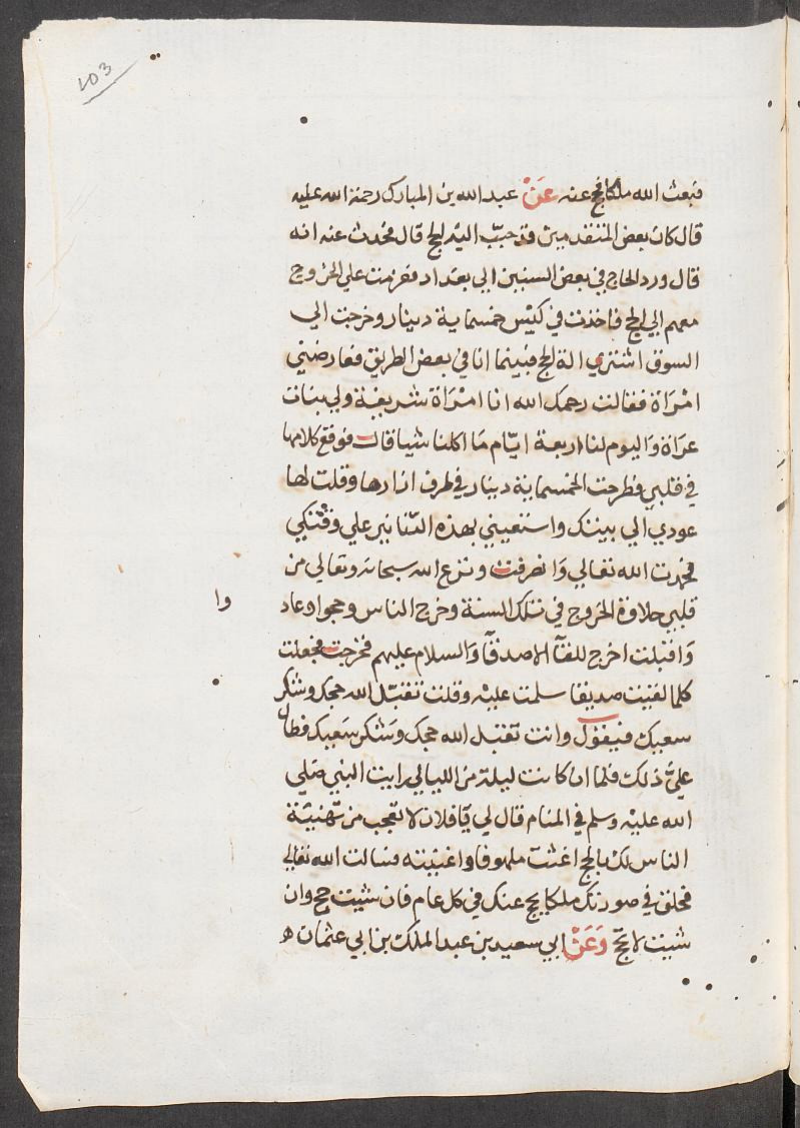 103
فبعث الله ملكا يحج عنه عَنْ عبد الله بن المبارك رحمة الله عليه
قال كان بعض المتقدمين قد حبّب اليه الحج قال فحُدث عنه انه
قال ورد الحاج في بعض السنين الي بغداد فعزمت علي الخروج
معهم الي الحج فاخذت في كيس خمسماية دينار وخرجت الي
السوق اشتري الة الحج فبينما انا في بعض الطريق فعارضتني
امْرَاة فقالت رحمك الله انا امْرَاة شريفة ولي بنات
عرَاة وَاليوم لنا اربعة ايّام مَا اكلنا شيا قال فوقع كلامها
في قلبي فطرحت الخمسماية دينار في طرف ازارها وقلت لها
عودي الي بيتك واستعيني بهذه الدنانير علي وقتكي
فحمدت الله تعالي وَانصرفت ونزع الله سبحانه وتعالي من
قلبي حلاوة الخروج في تلك السنة وخرج الناس وحجوا وعاد
وا
وَاقبلت اخرج للقآ الاصدقآ وَالسلام عليهم فخرجت فجعلت
كلما لقيت صديقا سلمت عليْه وقلت تقبّل الله حجك وشكر
سعيك فيقول وانت تقبل الله حجك وَشكر سَعيك فطال
عليَّ ذلك فلما ان كانت ليلة من الليالي رايت النبي صَلي
الله عليْه وسلم في المنام قال لي يَا فلان لا تعجب من تهنيّة
الناس لك بالحج اغثت ملهوفا واغنيته فسالت الله تعالي
فخلق في صورتك ملكا يحج عنك في كل عام فان شيت حج وان
شيت لا تحجّ وَعَنْ ابي سعيد بن عبد الملك بن ابي عثمان